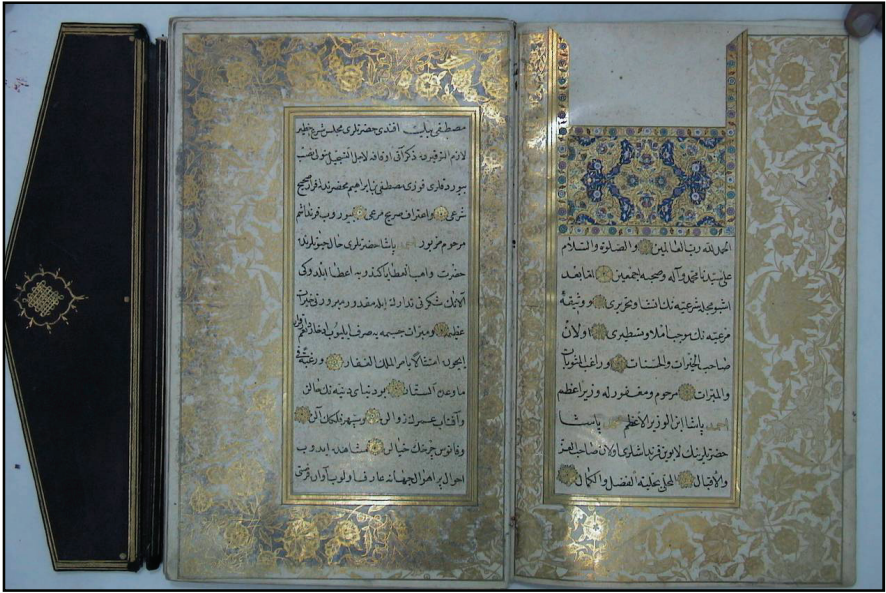 الحمد لله رب العالمين والصلوة والسلام
على سيدنا محمد وآله وصحبه اجمعين اما بعد
اشبو مجلهٔ شرعيه نك انشا وتحريرى ووثيقهٔ
مرعيه نك موجب املا وتسطيرى اولدركه
صاحب الخيرات والحسنات وراغب المثوبات
والمبرات مرحوم ومغفور له وزير اعظم
احمد پاشا ابن الوزير الاعظم محمد پاشا
حضرتلرينك لابوين قرنداشلرى اولان صاحب العز
والاقبال المحلى بحلية الفضل والكمال
مصطفى بك افندى حضرتلرى مجلس شرع خطير
لازم التوقيرده ذكر آتى اوقافه لاجل التسجيل متولى نصب
بيوردقلرى فوزى مصطفى بن ابراهيم محضرنده اقرار صحيح
شرعى واعتراف صريح مرعى بيوروب قرنداشم
مرحوم مزبور احمد پاشا حضرتلرى حال حيوتلرنده
حضرت واهب العطايا كندويه اعطا ايلدوكى
آلانك شكرنى تدارك ايله مقدور ومبرورنى خيرات
عظيمه ومبرات جسيمه يه صرف ايليوب
ايچون امتثالا بامر الملك الغفار ورغبة فى
ما وعد الستار بو دنياى دنيه نك مالى
وآفتاب عمرك زوالى وسپهر
وفانوس چرخك خيالى مشاهده ايدوب
احوال پر اهوال جهانه عارف اولوب